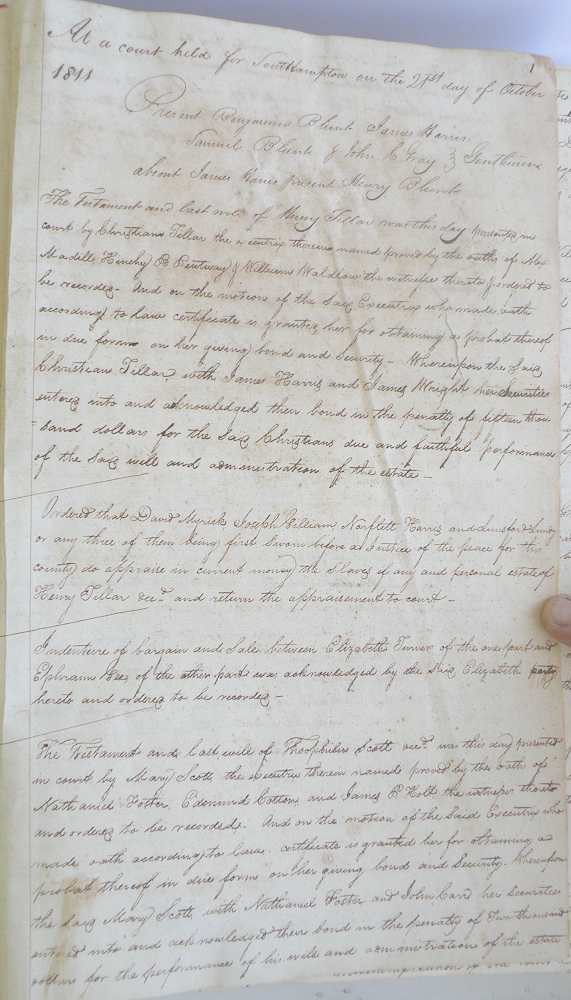 1
At a court held for Southampton on the 21st day of October
1811
Present Benjamin Blunt James Harris
Samuel Blunt & John C Gray Gentlemen
absent James Harris present Henry Blunt
The Testament and last will of Henry Tillar was this day presented in
court by Christian Tillar the executrix therein named proved by the oaths of Alex
Madill, Hinchey & William Waldrow the witnesses thereto & ordered to
be recorded - And on the motion of the said Executrix who made oath
according to law certificate is granted her for obtaining a probat thereof
in due form on her giving bond and Security - Whereupon the said
Christian Tillar with James Harris and James Wright her Securities
entered into and acknowledged their bond in the penalty of fifteen thou
-sand dollars for the said Christians due and faithful performance
of the said will and administration of the estate -
Ordered that David Myrick Joseph William Norflett Harris and Lunsford
or any three of them being first sworn before a Justice of the peace for the
county do appraise in current money the Slaves if any and personal estate of
Henry Tillar decd and return the appraisement to court -
Indenture of bargain and Sale between Elizabeth Turner of the one part and
Ephraim of the other part was acknowledged by the said Elizabeth party
hereto and ordered to be recorded -
The Testament and last will of Theophilus Scott decd was this day presented
in court by Mary Scott the executrix therein named proved by the oath of
Nathaniel Foster, Edmund Cotton, and James B Holt the witnesses thereto
and ordered to be recorded. And on the motion of the said Executrix who
made oath according to law certificate is granted her for obtaining a
probat thereof in due form on her giving bond and Security. Whereupon
the said Mary Scott with Nathaniel Foster and John Carr her Securities
entered into and acknowledged their bond in the penalty of Two thousand
dollars for the performance of his will and administration of the estate